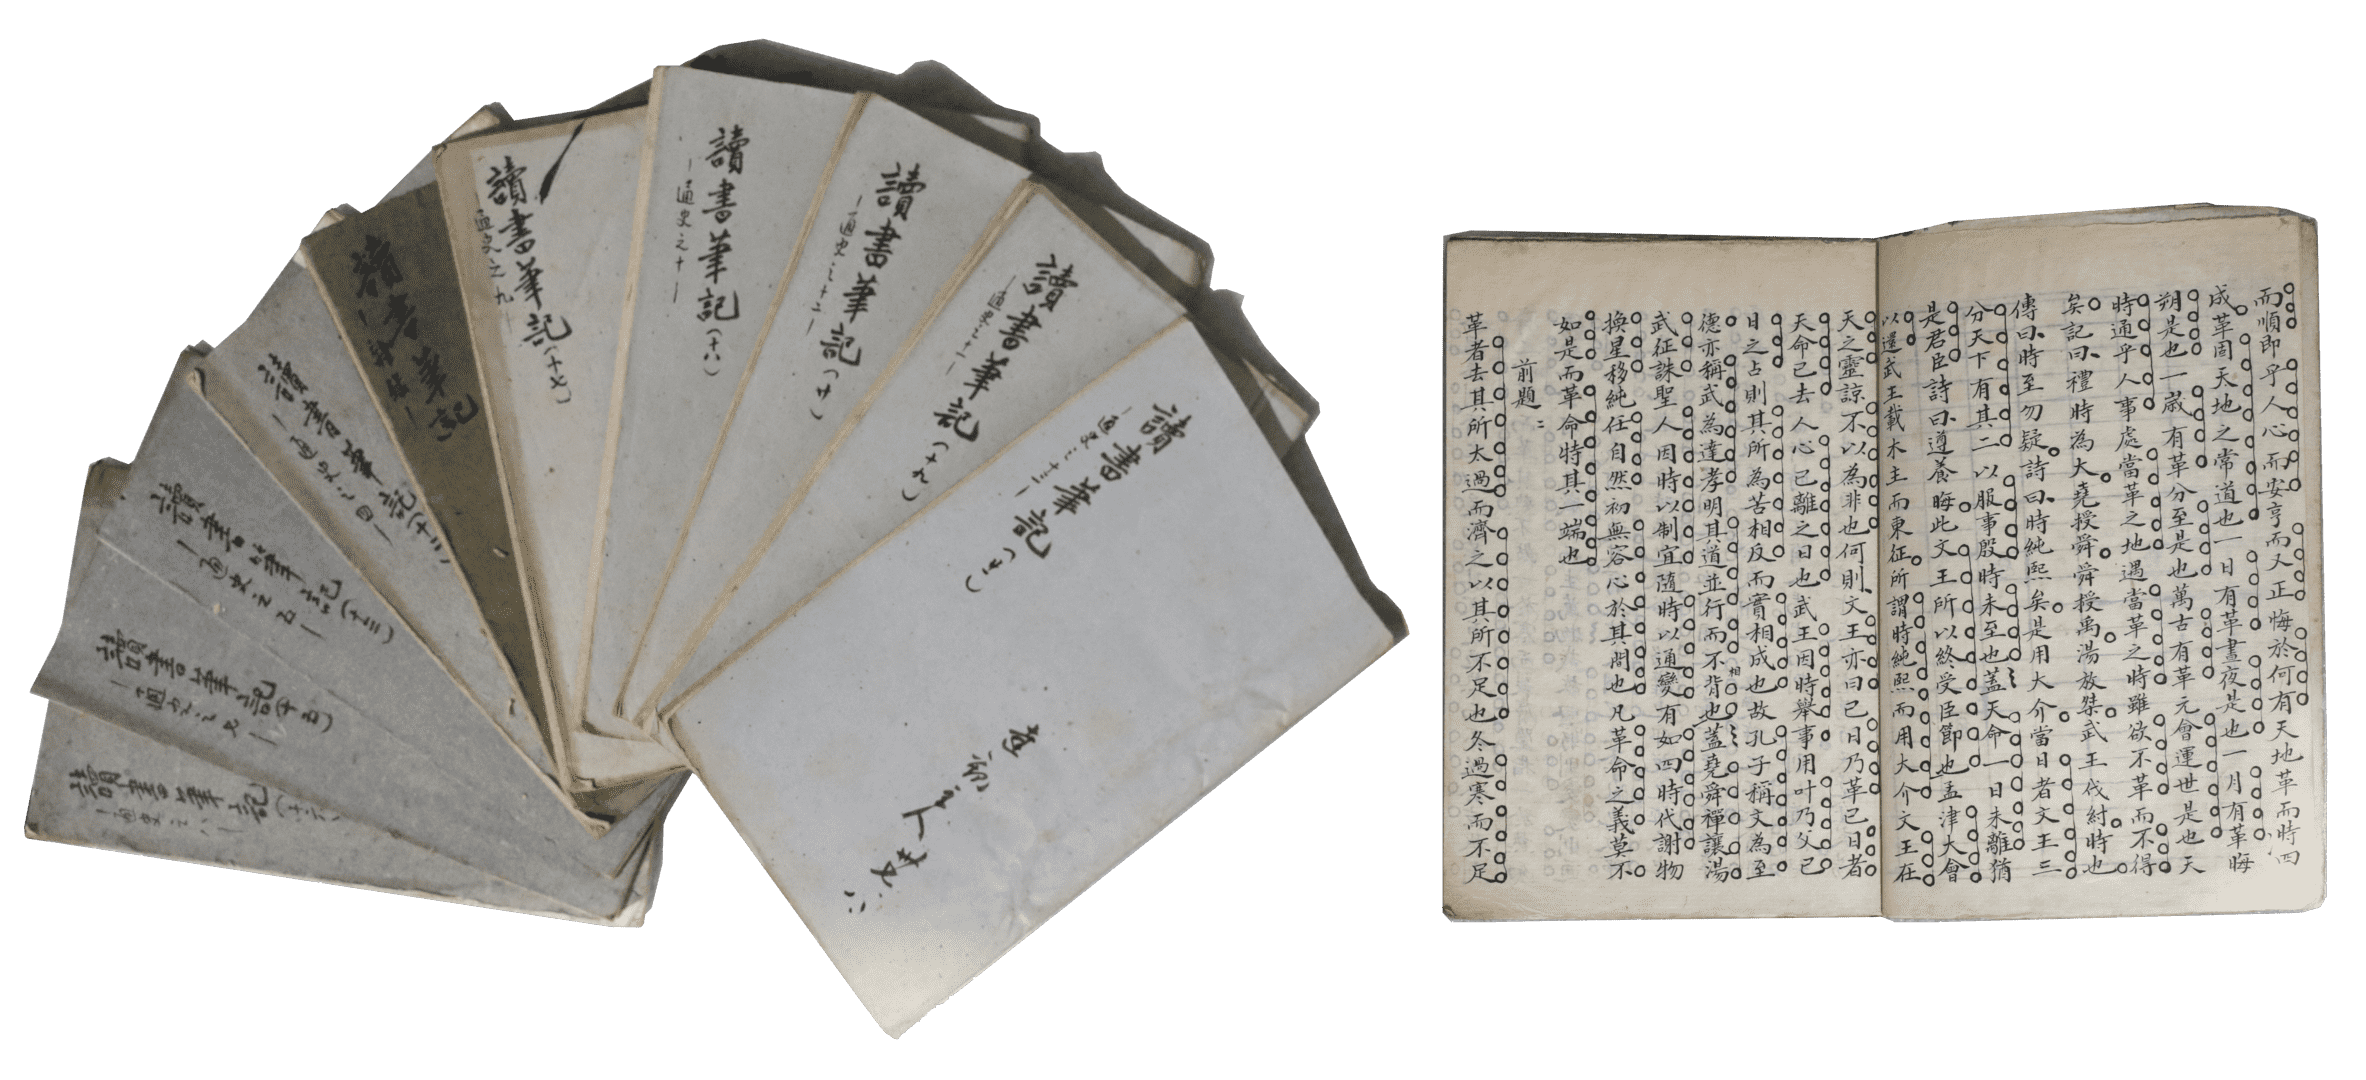 讀書筆記(十六)
—通史之八—
讀書筆記(十五)
讀書筆記(十三)
—通史之五—
讀書筆記(十二)
—通史之四—
讀書筆記
讀書筆記(十七)
—通史之九—
讀書筆記(十八)
—通史之十—
讀書筆記
—通史之十二—
讀書筆記(十九)
—通史之十一—
讀書筆記
—通史之十三—
而順即乎人心而安亨而又正悔於何有天地革而時四
成革固天地之常道也一日有革晝夜是也一月有革晦
朔是也一歲有革分至是也萬古有革元會運世是也天
時通乎人事處當革之地遇當革之時雖欲不革而不得
矣記曰禮時為大堯授舜舜授禹湯放桀武王伐紂時也
傳曰時至勿疑詩曰時純熙矣是用大介當日者文王三
分天下有其二以服事殷時未至也蓋天命一日未離猶
是君臣詩曰遵養晦此文王所以終受臣節也孟津大會
以還武王載木主而東征所謂時純熙而用大介文王在
天之靈諒不以為非也何則文王亦曰已日乃革已日者
天命已去人心已離之日也武王因時舉事用叶乃父已
日之占則其所為苦相反而實相成也故孔子稱文為至
德亦稱武為達孝明其道並行而不相背也蓋堯舜禪讓湯
武征誅聖人因時以制宜隨時以通變有如四時代謝物
換星移純任自然初無容心於其間也凡革命之義莫不
如是而革命特其一端也
前題：
革者去其所太過而濟之以其所不足也冬過寒而不足